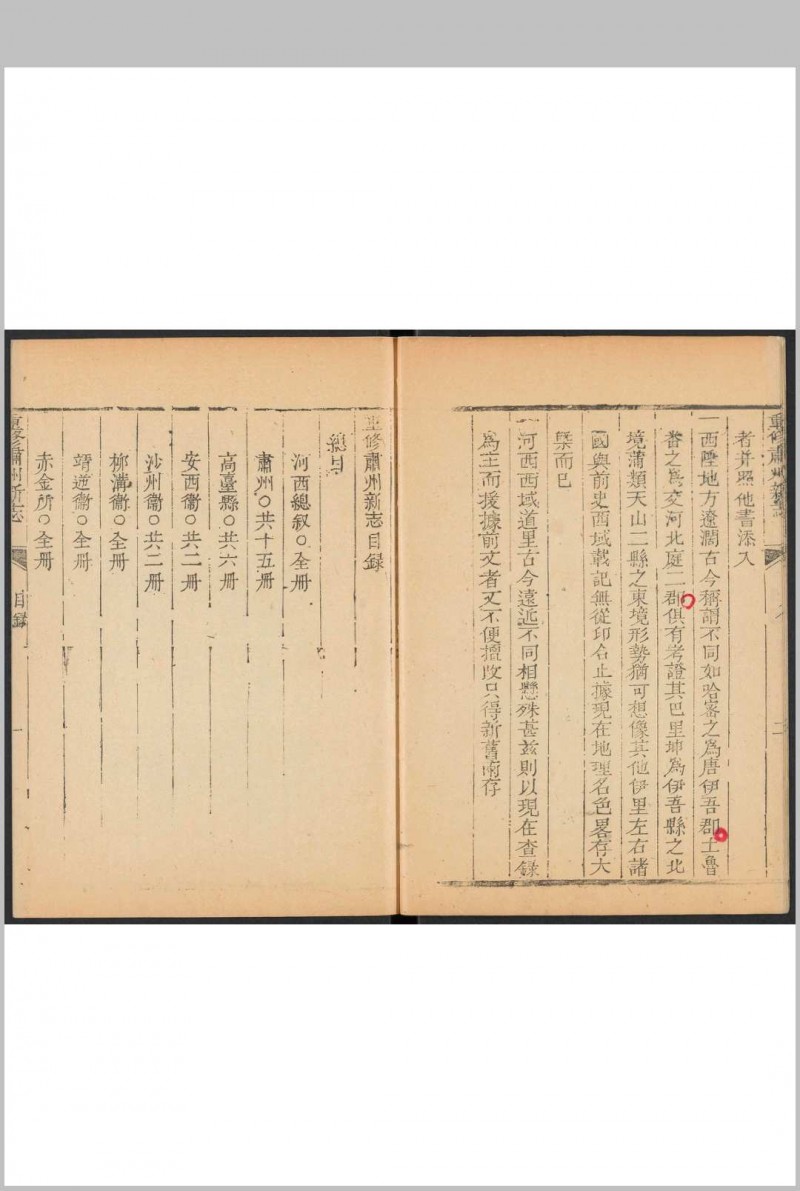 重修肅州新志
二
者并照他書添入
一西陲地方遼濶古今稱謂不同如哈宻之爲唐伊吾郡土魯
番之爲交河北庭二郡俱有考證其巴里坤爲伊吾縣之北
境蒲類天山二縣之東境形勢猶可想像其他伊里左右諸
國與前史西域載記無從印名止據現在地理名色畧存大
槩而已
一河西西域道里古今遠近不同相懸殊甚兹則以現在查錄
爲主而援據前文者又不便擅改只得新舊兩存
重修肅州新志目録
總目
河西總叙○全册
肅州○共十五册
高臺縣○共六册
安西衞○共二册
沙州衞○共二册
柳溝衞○全册
靖逆衞○全册
赤金所○全册
重修肅州新志
目録
一